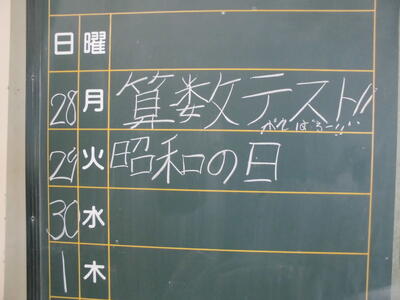 日曜
28月 算数テスト!!
がんばろー!!
29火 昭和の日
30水
1木